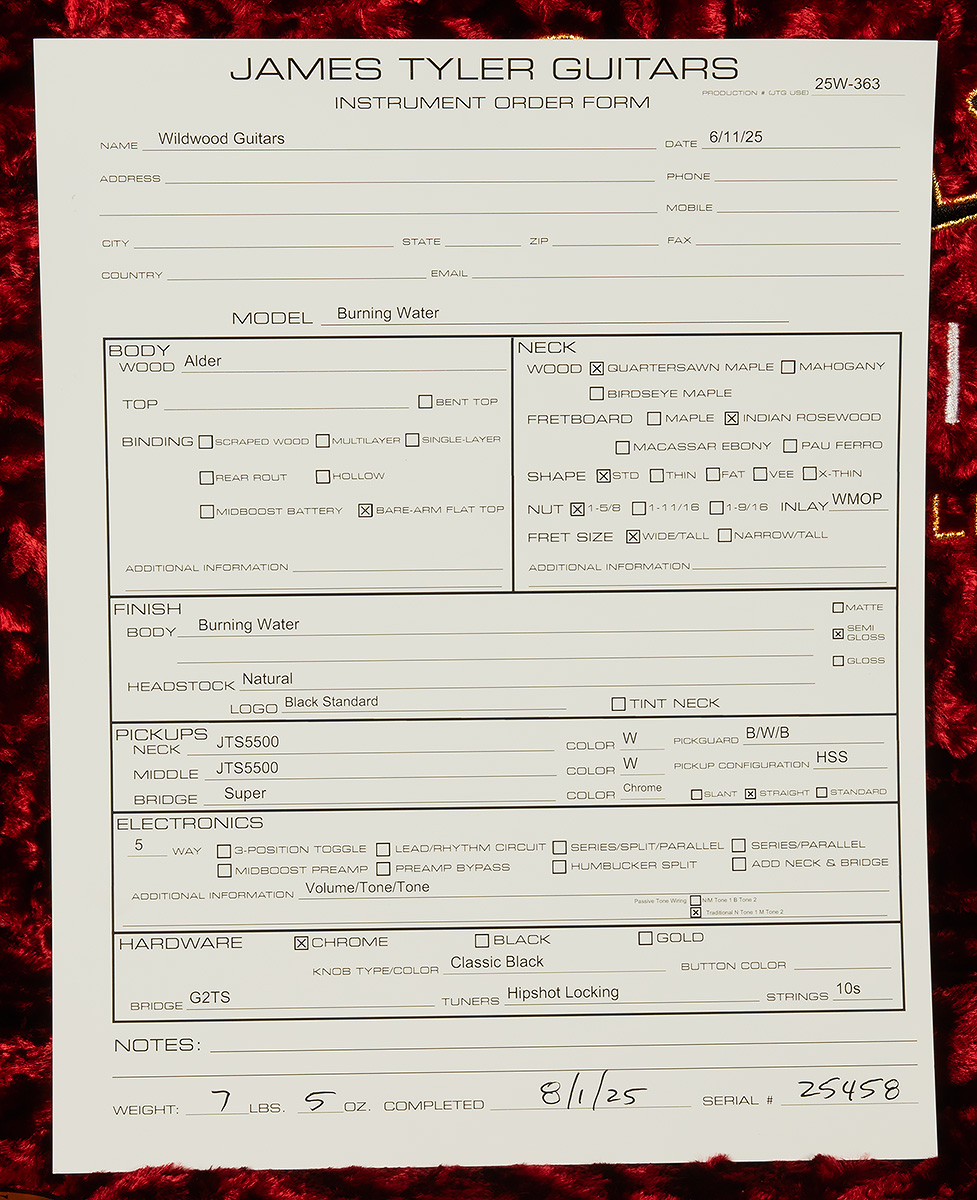 JAMES TYLER GUITARS
PRODUCTION # (JTG USE) 25W-363
INSTRUMENT ORDER FORM
NAME Wildwood Guitars DATE 6/11/25
ADDRESS PHONE
MOBILE
CITY STATE ZIP FAX
COUNTRY EMAIL
MODEL Burning Water
BODY
WOOD Alder
TOP ☐ BENT TOP
BINDING ☐ SCRAPED WOOD ☐ MULTILAYER ☐ SINGLE-LAYER
☐ REAR ROUT ☐ HOLLOW
☐ MIDBOOST BATTERY ☒ BARE-ARM FLAT TOP
ADDITIONAL INFORMATION
NECK
WOOD ☒ QUARTERSAWN MAPLE ☐ MAHOGANY
☐ BIRDSEYE MAPLE
FRETBOARD ☐ MAPLE ☒ INDIAN ROSEWOOD
☐ MACASSAR EBONY ☐ PAU FERRO
SHAPE ☒ STD ☐ THIN ☐ FAT ☐ VEE ☐ X-THIN
NUT ☒ 1-5/8 ☐ 1-11/16 ☐ 1-9/16 INLAY WMOP
FRET SIZE ☒ WIDE/TALL ☐ NARROW/TALL
ADDITIONAL INFORMATION
FINISH
BODY Burning Water
☐ MATTE
☒ SEMI GLOSS
☐ GLOSS
HEADSTOCK Natural
LOGO Black Standard ☐ TINT NECK
PICKUPS
NECK JTS5500 COLOR W PICKGUARD B/W/B
MIDDLE JTS5500 COLOR W PICKUP CONFIGURATION HSS
BRIDGE Super COLOR Chrome ☐ SLANT ☒ STRAIGHT ☐ STANDARD
ELECTRONICS
5 WAY ☐ 3-POSITION TOGGLE ☐ LEAD/RHYTHM CIRCUIT ☐ SERIES/SPLIT/PARALLEL ☐ SERIES/PARALLEL
☐ MIDBOOST PREAMP ☐ PREAMP BYPASS ☐ HUMBUCKER SPLIT ☐ ADD NECK & BRIDGE
ADDITIONAL INFORMATION Volume/Tone/Tone
Passive Tone Wiring ☐ N/M Tone 1 B Tone 2
☒ Traditional N Tone 1 M Tone 2
HARDWARE ☒ CHROME ☐ BLACK ☐ GOLD
KNOB TYPE/COLOR Classic Black BUTTON COLOR
BRIDGE G2TS TUNERS Hipshot Locking STRINGS 10s
NOTES:
WEIGHT: 7 LBS. 5 OZ. COMPLETED 8/1/25 SERIAL # 25458